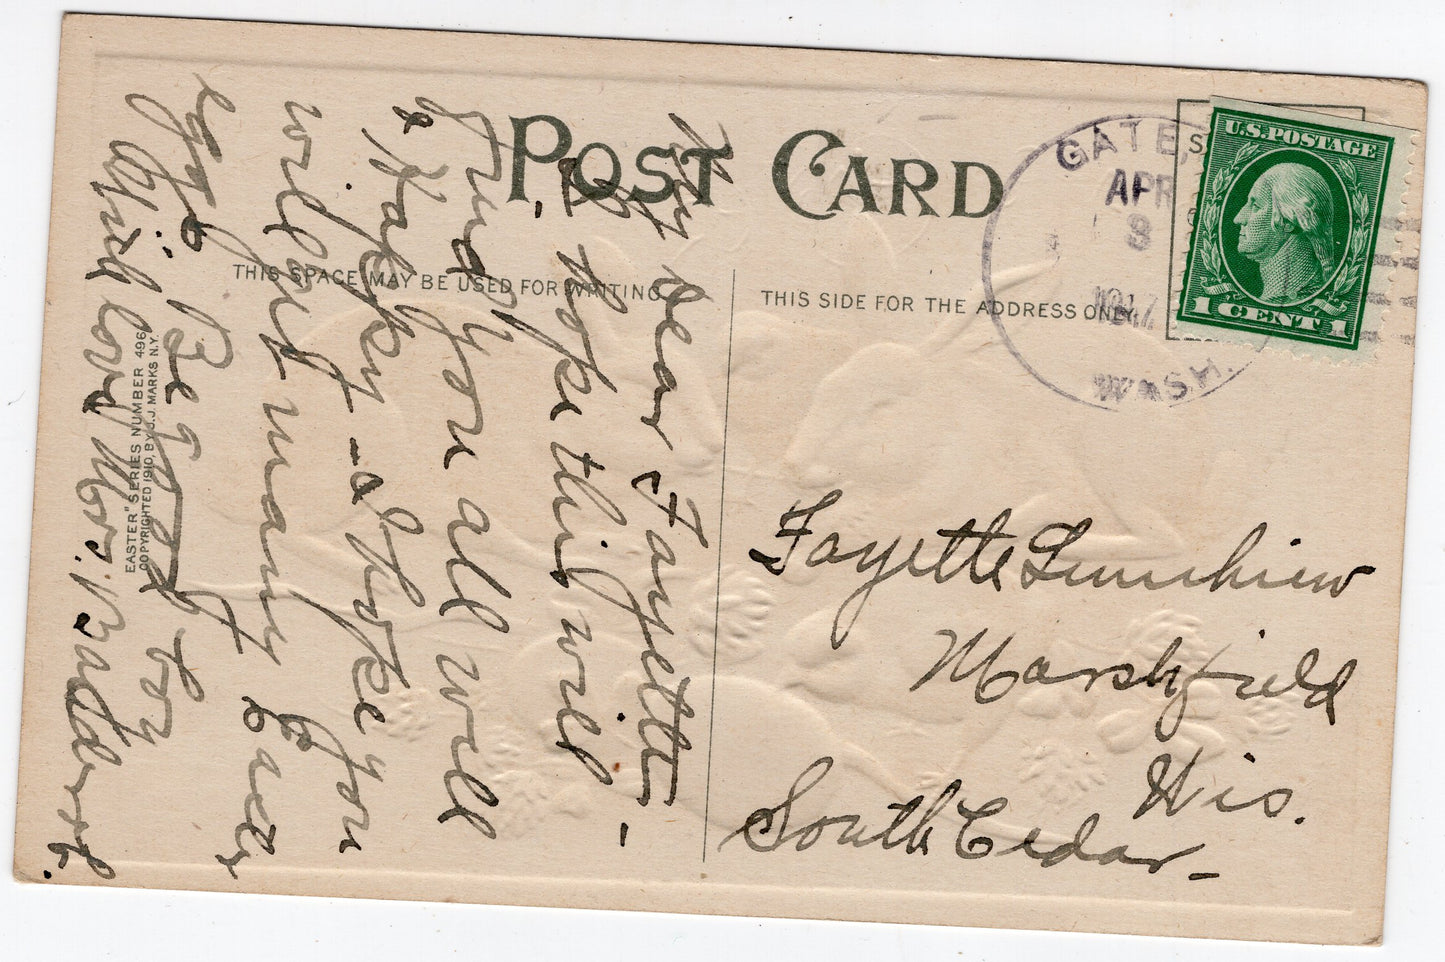 POST CARD
THIS SPACE MAY BE USED FOR WRITING
THIS SIDE FOR THE ADDRESS ONLY.
GATE,
APR
8
1917
WASH.
U.S. POSTAGE
1 CENT 1
My dear Fayette -
I hope this will -
find you all well
& Happy - I hope you
will get many Easter
eggs Be good boy
With love Mrs.
"EASTER" SERIES NUMBER 496
COPYRIGHTED 1910, BY J.J. MARKS N.Y.
Fayette
Marshfield
Wis.
South Cedar -